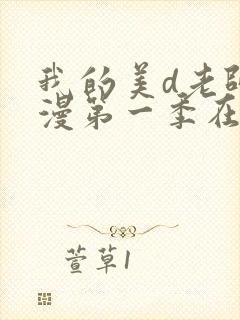 我的美d老師
漫第一季在
萱草1